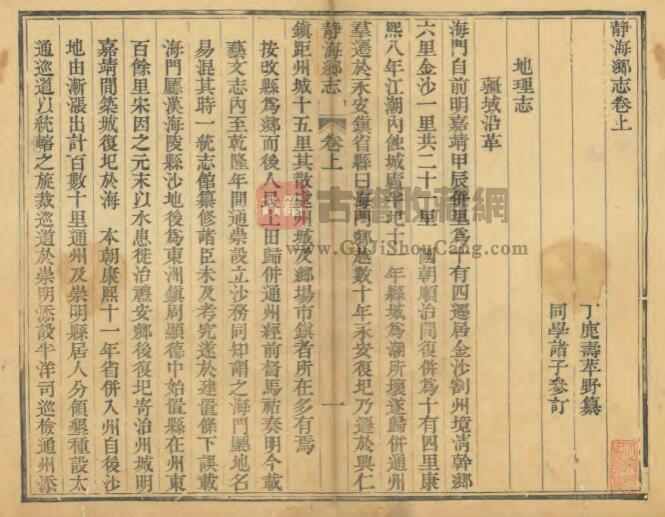 靜海鄉志卷上
丁鹿壽苹野纂
同學諸子參訂
地理志
疆域沿革
海門自前明嘉靖甲辰併里為十有四遷居金沙割州境淸幹鄉
六里金沙一里共二十一里 國朝順治間復併為十有四里康
熙八年江潮內蝕城廬半圮十一年縣城為潮所壞遂歸併通州
羣遷於永安鎮省縣曰海門鄉越數十年永安復圮乃遷於興仁
鎮距州城十五里其散處州城及鄉場市鎮者所在多有焉
靜海鄉志
卷上
一
按改縣為鄉而後人民土田歸併通州經前督馬祐奏明今載
藝文志內至乾隆年間通崇設立沙務同知謂之海門廳地名
易混其時一統志館纂修諸臣未及考究遂於建置條下誤載
海門廳漢海陵縣沙地後為東洲鎮周顯德中始置縣在州東
百餘里宋因之元末以水患徙治禮安鄉後復圮寄治州城明
嘉靖間築城復圮於海 本朝康熙十一年省併入州自後沙
地由漸漲出計百數十里通州及崇明縣居人分領墾種設太
通巡道以統轄之旋裁巡道於崇明添設半洋司巡檢通州添
古籍收藏網
www.GuJiShouCang.com